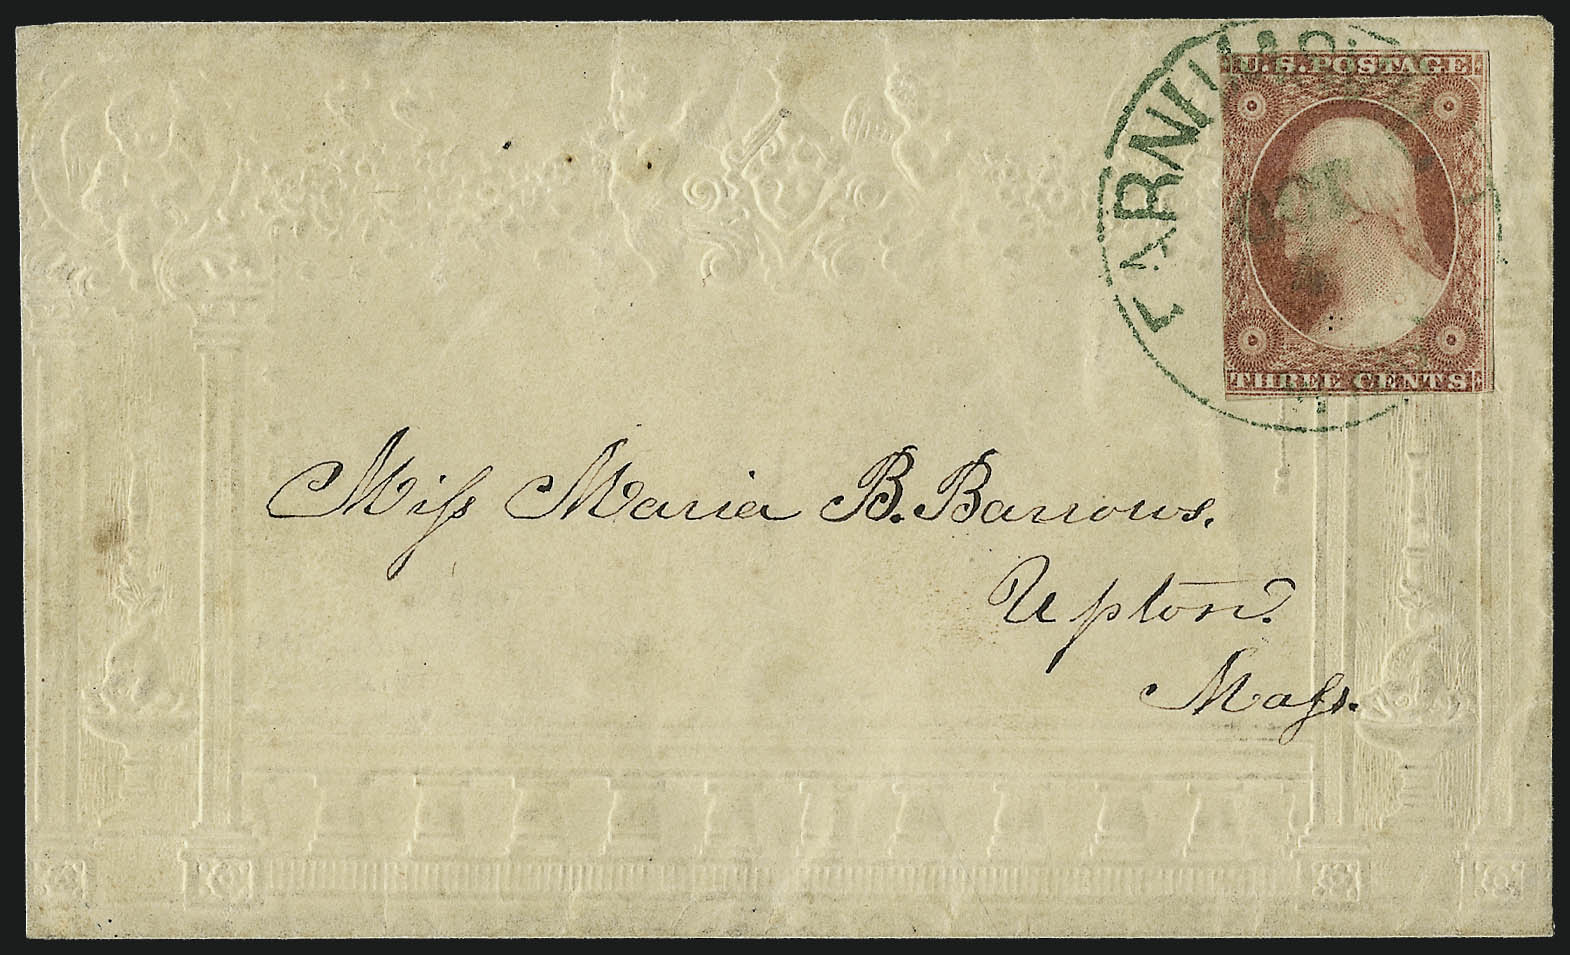 U.S. POSTAGE
THREE CENTS
OCT
Miſs Maria B. Barrows.
Upton.
Maſs.